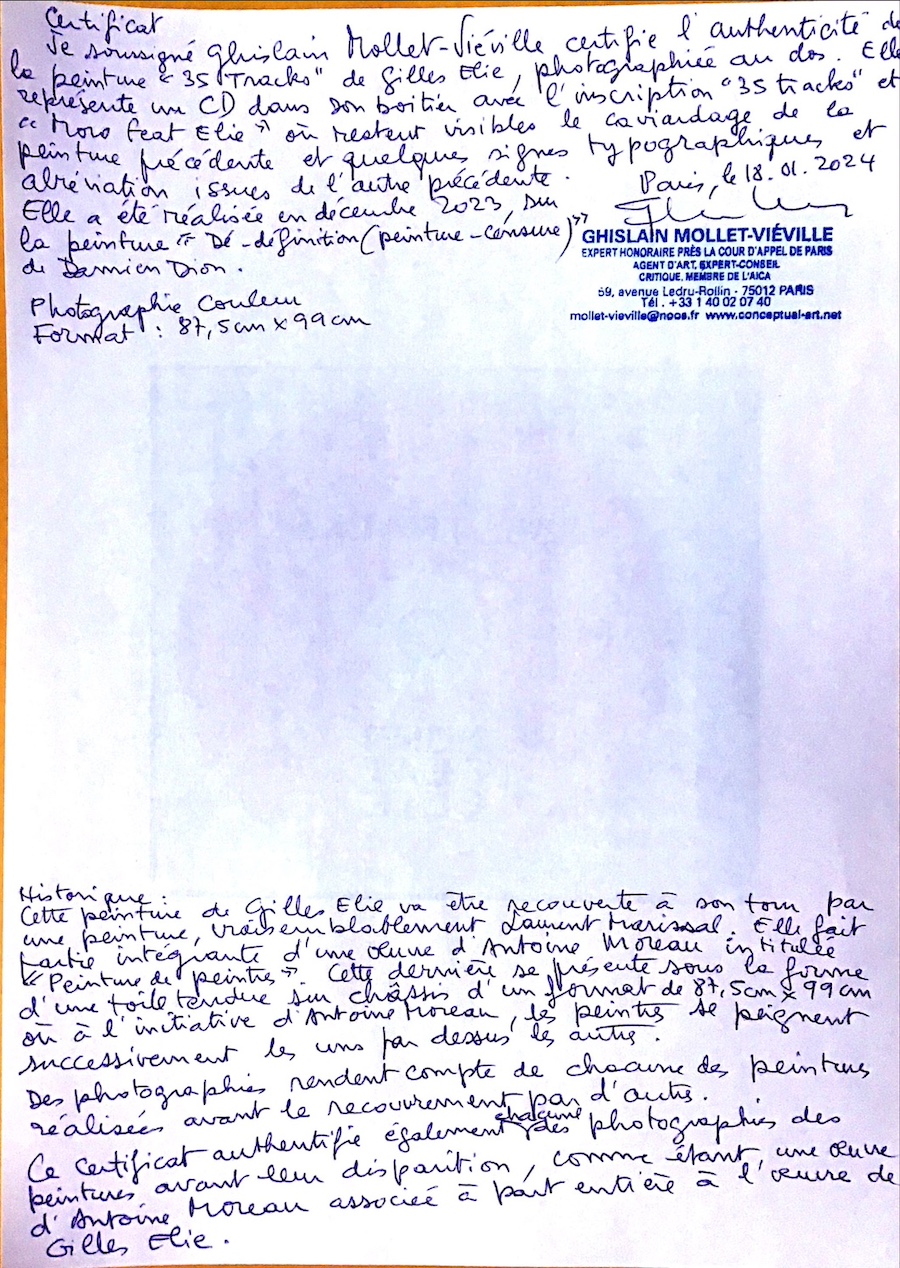 Certificat
Je soussigné Ghislain Mollet-Viéville certifie l'authenticité de
la peinture "35 Tracks" de Gilles Elie, photographiée au dos. Elle
représente un CD dans son boitier avec l'inscription "35 tracks" et
"Moro feat Elie" où restent visibles le caviardage de la
peinture précédente et quelques signes typographiques et
abréviation issues de l'autre précédente.
Elle a été réalisée en décembre 2023, sur
la peinture "Dé-définition (peinture-censure)"
de Damien Dion.
Paris, le 18.01.2024
GHISLAIN MOLLET-VIÉVILLE
EXPERT HONORAIRE PRÈS LA COUR D'APPEL DE PARIS
AGENT D'ART, EXPERT-CONSEIL
CRITIQUE, MEMBRE DE L'AICA
59, avenue Ledru-Rollin - 75012 PARIS
Tél. +33 1 40 02 07 40
mollet-vieville@noos.fr www.conceptual-art.net
Photographie Couleur
Format : 87,5cm x 99cm
Historique :
Cette peinture de Gilles Elie va être recouverte à son tour par
une peinture, vraisemblablement Laurent Marissal. Elle fait
partie intégrante d'une œuvre d'Antoine Moreau intitulée
"Peinture de peintres". Cette dernière se présente sous la forme
d'une toile tendue sur châssis d'un format de 87,5cm x 99cm
où à l'initiative d'Antoine Moreau, les peintres se peignent
successivement les uns par dessus les autres.
Des photographies rendent compte de chacune des peintures
réalisées avant le recouvrement par d'autres.
Ce certificat authentifie également chacune des photographies des
peintures avant leur disparition, comme étant une œuvre
d'Antoine Moreau associée à part entière à l'œuvre de
Gilles Elie.